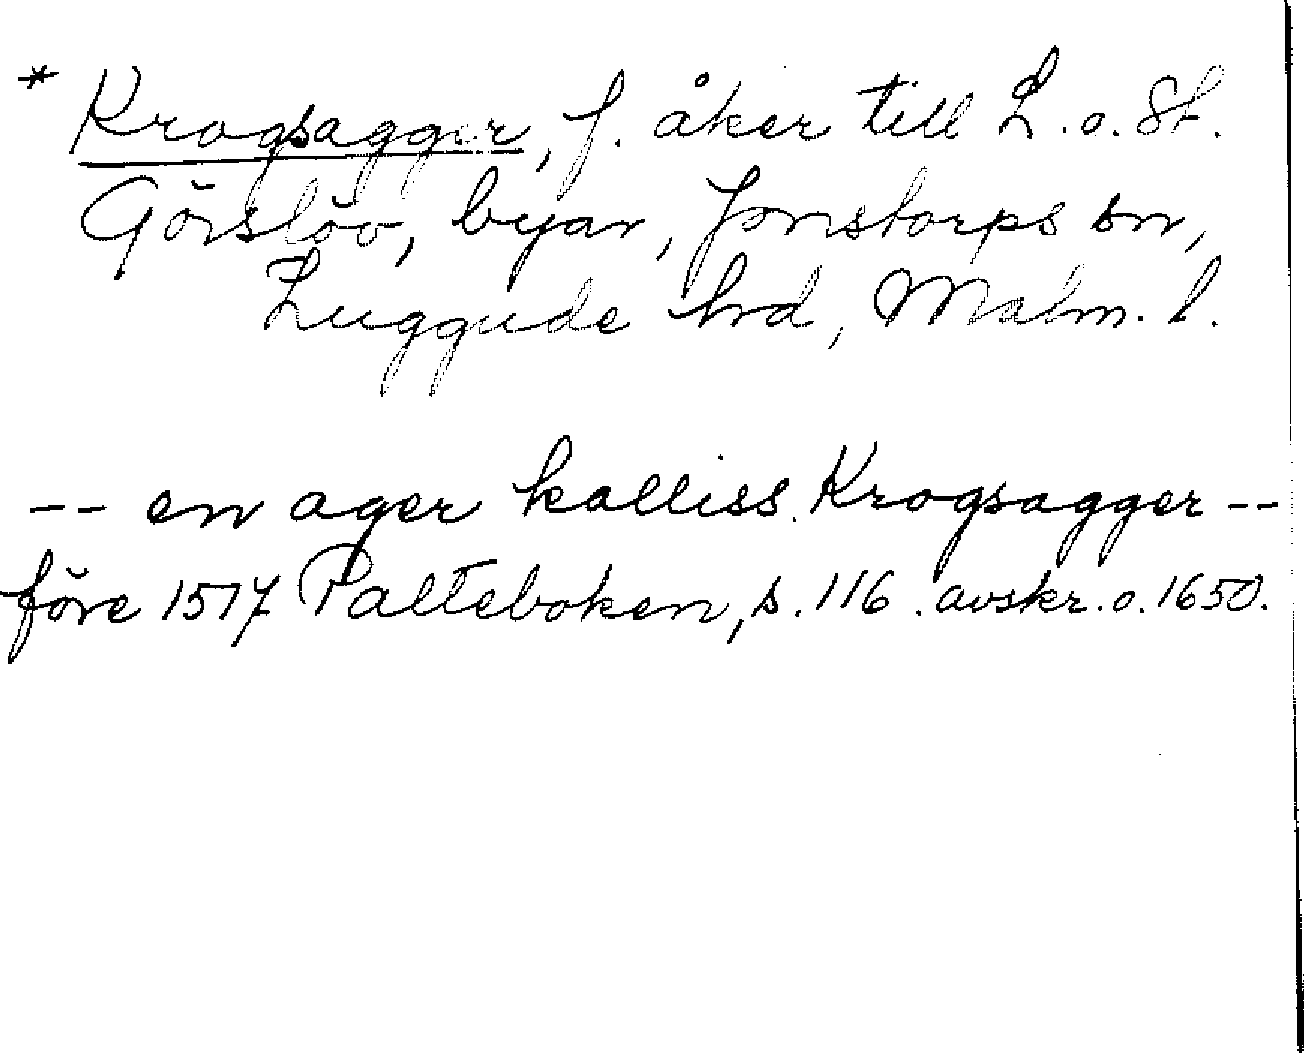 * Krogsagger, f. åker till L. o. St.
Görslöv, byar, Jonstorps sn,
Luggude hrd, Malm. l.
-- en ager kalliss Krogsagger --
före 1517 Palteboken, s. 116. avskr. o. 1650.